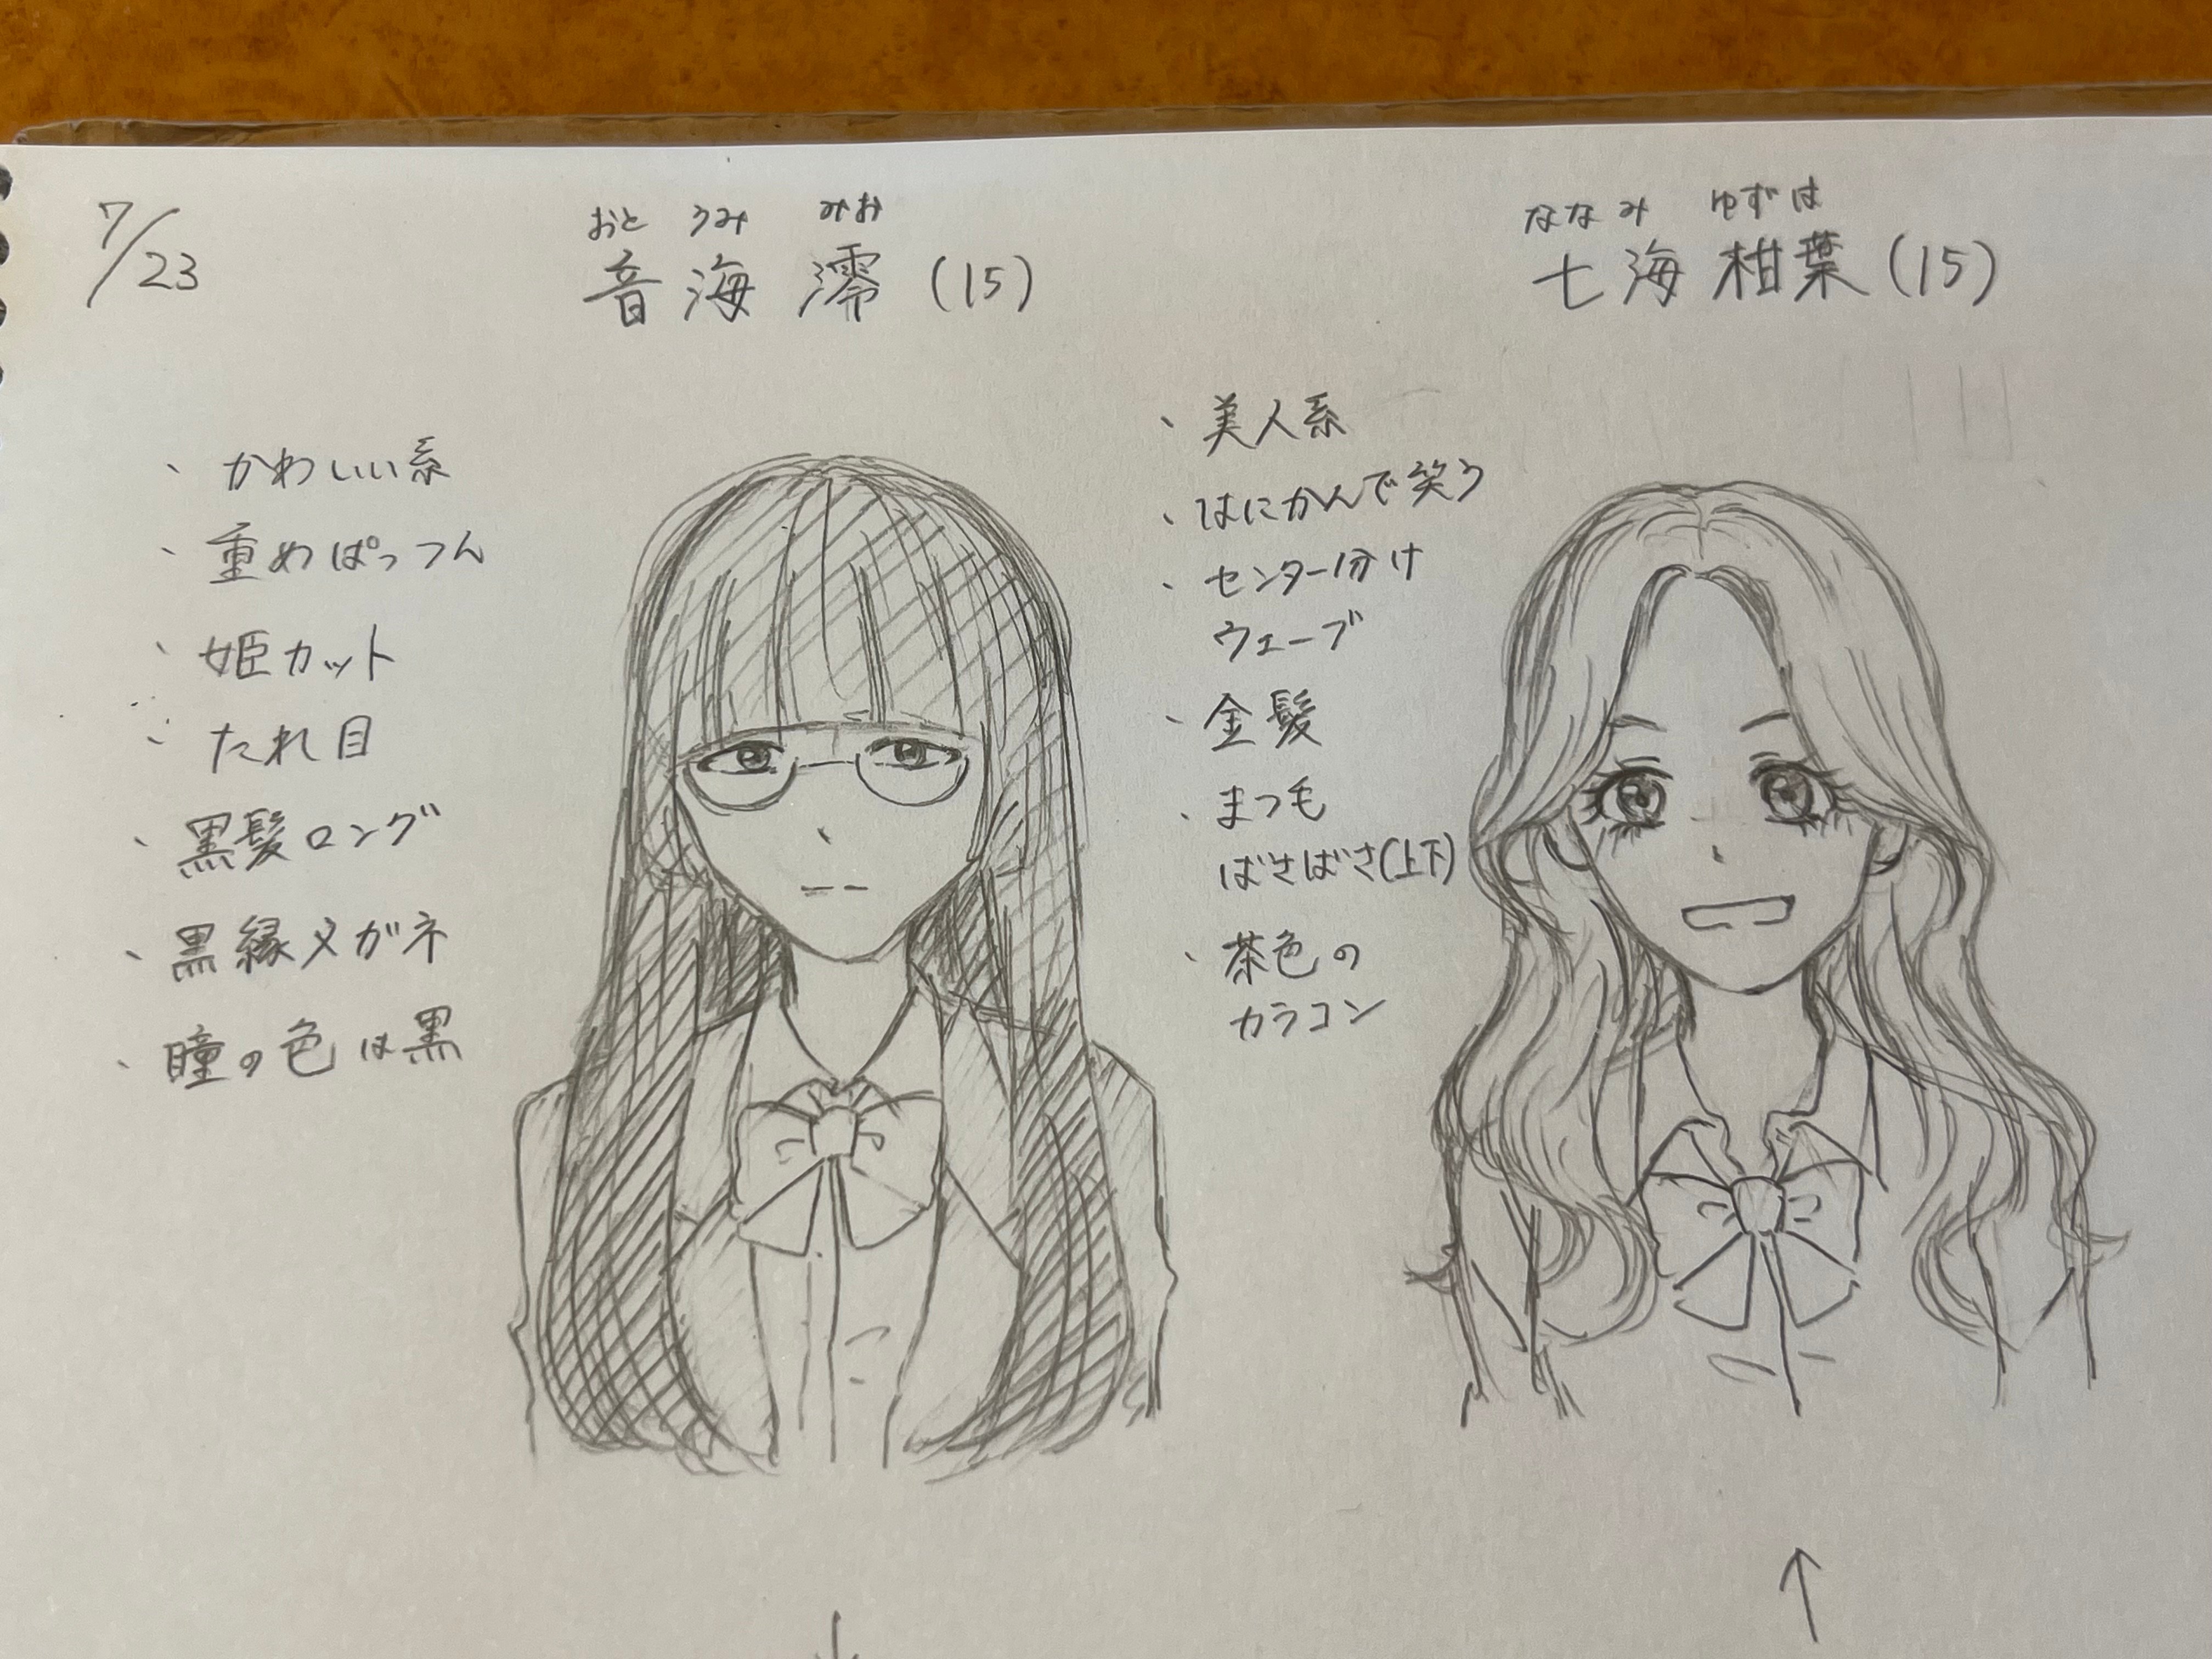 7/23
おと うみ みお
音海 澪 (15)
・かわいい系
・重めぱっつん
・姫カット
・たれ目
・黒髪ロング
・黒縁メガネ
・瞳の色は黒
ななみ ゆずは
七海 柑葉 (15)
・美人系
・はにかんで笑う
・センター分け
ウェーブ
・金髪
・まつ毛
ばさばさ(上下)
・茶色の
カラコン